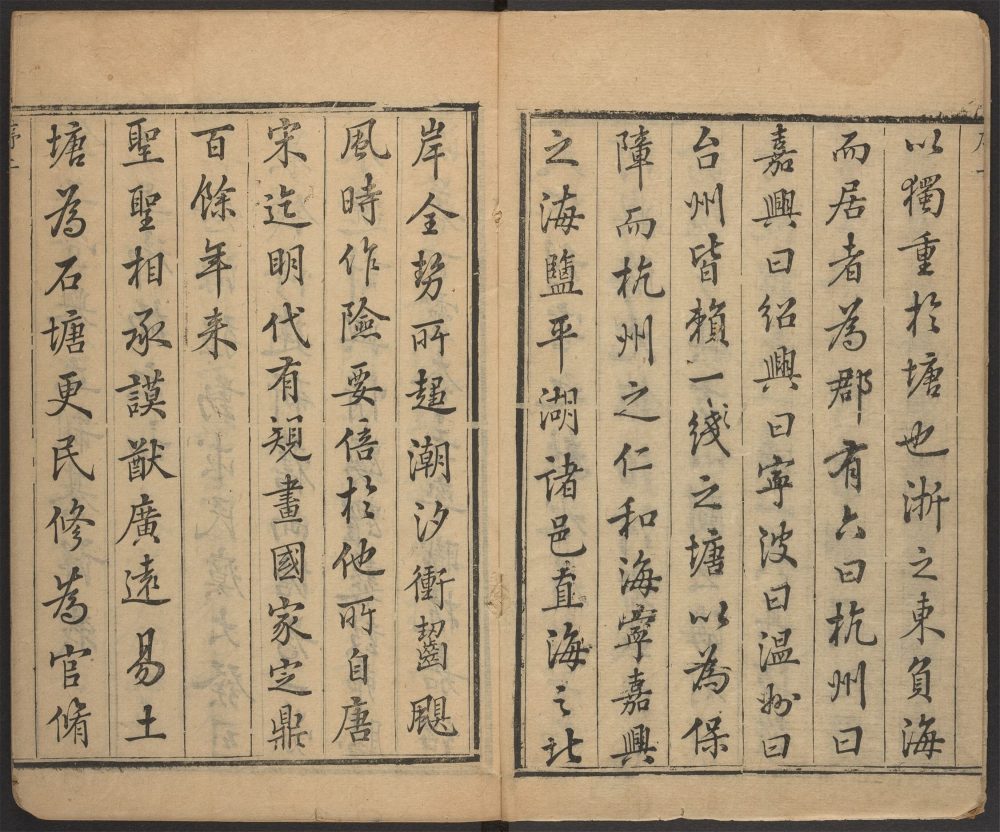 以獨重於塘也浙之東負海
而居者為郡有六曰杭州曰
嘉興曰紹興曰寧波曰温州曰
台州皆賴一綫之塘以為保
障而杭州之仁和海寧嘉興
之海鹽平湖諸邑直海之北
岸全勢所趨潮汐衝齧颶
風時作險要倍於他所自唐
宋迄明代有規畫國家定鼎
百餘年来
聖聖相承謨猷廣遠易土
塘為石塘更民修為官脩